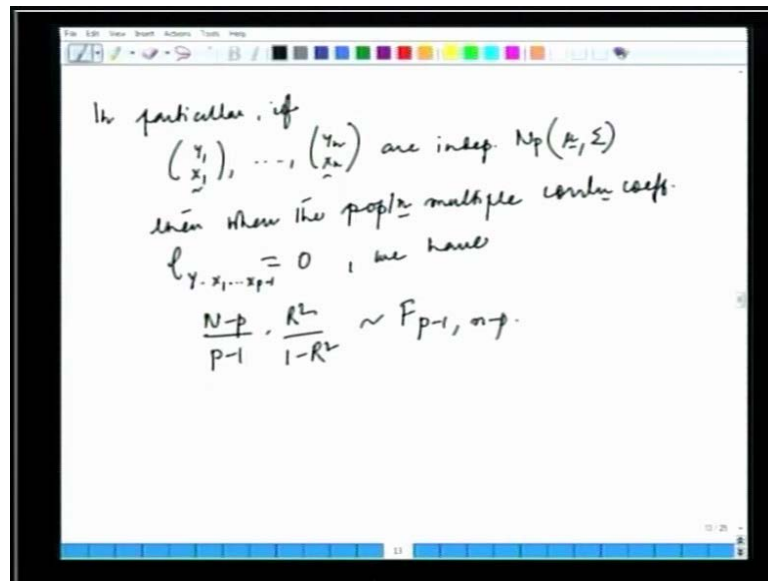 File Edit View Insert Actions Tools Help
In particular, if
(y₁ x₁), ..., (yₙ xₙ) are indep. Np(μ, Σ)
then when the popln multiple corrln coeff.
ρ y·x₁...xp-1 = 0, we have
N-p/p-1 · R²/1-R² ~ F p-1, n-p.
13/25
13